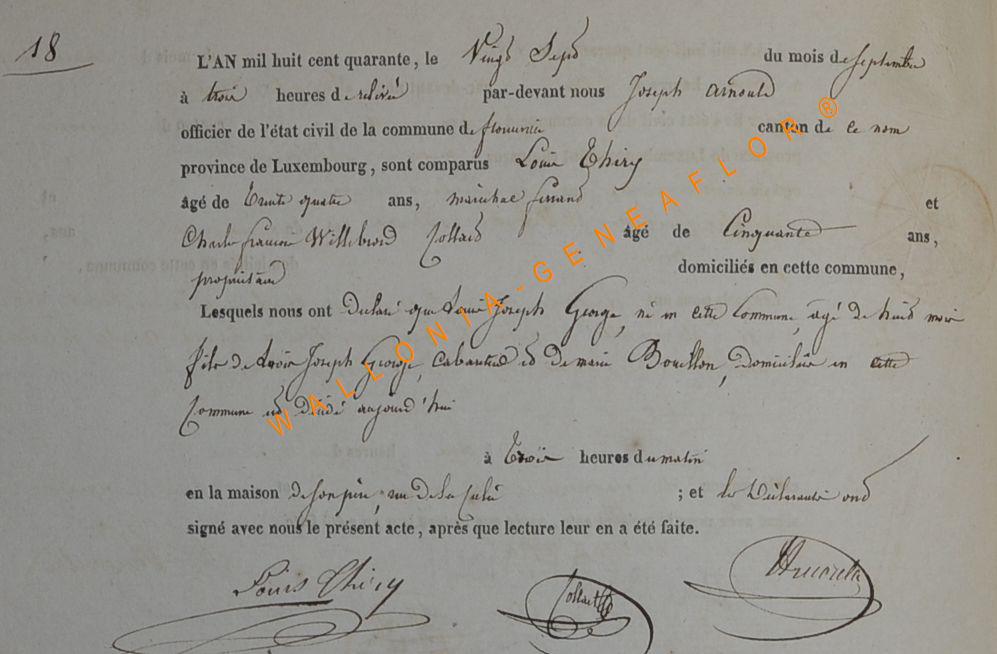 18
L'AN mil huit cent quarante, le Vingt Sept du mois de septembre
à trois heures de relevée par-devant nous Joseph Arnould
officier de l'état civil de la commune de florenville canton de ce nom
province de Luxembourg, sont comparus Louis Thiry
âgé de Trente quatre ans, maréchal ferrand et
Charles francois Willebrord Collard âgé de Cinquante ans,
propriétaire domiciliés en cette commune,
Lesquels nous ont declaré que Louis Joseph George, né en cette Commune, agé de huit mois
fils de Louis Joseph George, Cabaretier et de marie Bouillon, Domiciliés en cette
Commune est décédé aujourd'hui
à trois heures du matin
en la maison de son père, rue de la ; et les Déclarants ont
signé avec nous le présent acte, après que lecture leur en a été faite.
Louis Thiry Collard
WALLONIA-GENEAFLOR ®